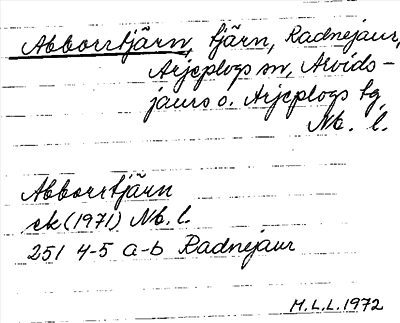 Abborrtjärn, tjärn, Radnejaur,
Arjeplogs sn, Arvids-
jaurs o. Arjeplogs tg
Nb. l.
Abborrtjärn
ek (1971) Nb. l.
251 4-5 a-b Radnejaur
M.L.L. 1972